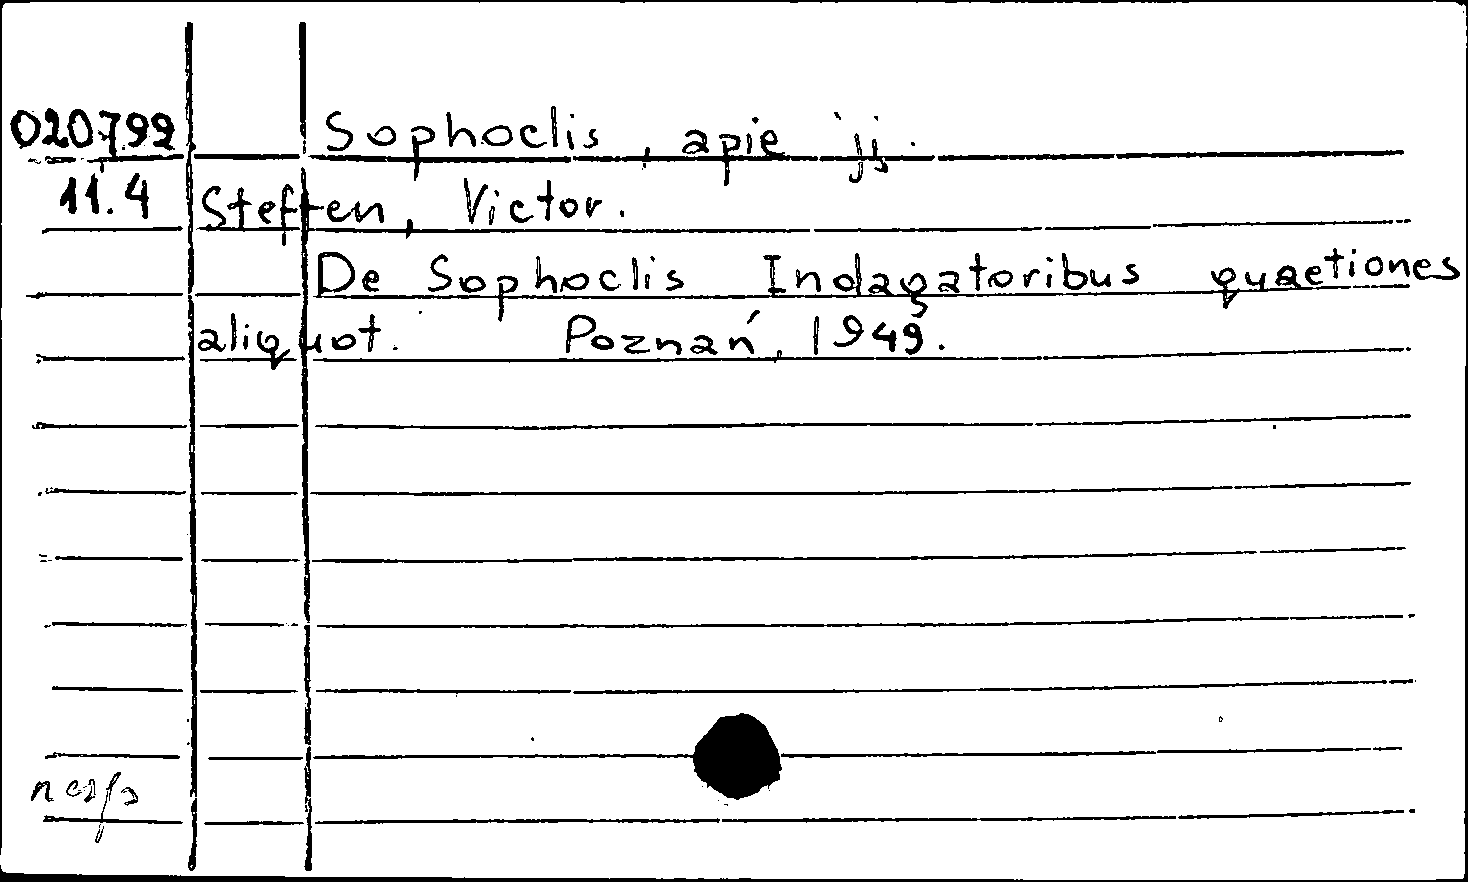 020799 Sophoclis, apie jį.
11.4 Steffen, Victor.
De Sophoclis Indagatoribus quaetiones
aliquot. Poznań, 1949.